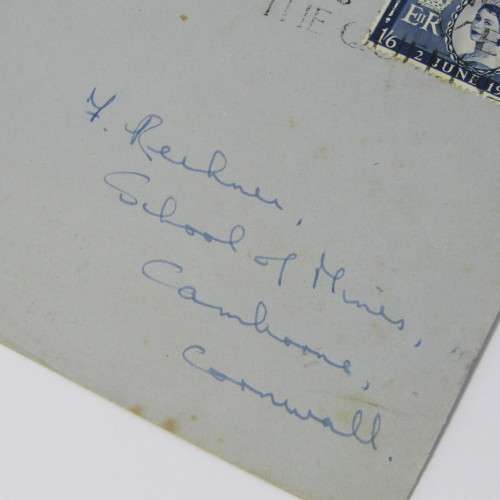 THE
E R
1/6 2 JUNE 19
School of Mines,
Camborne,
Cornwall.